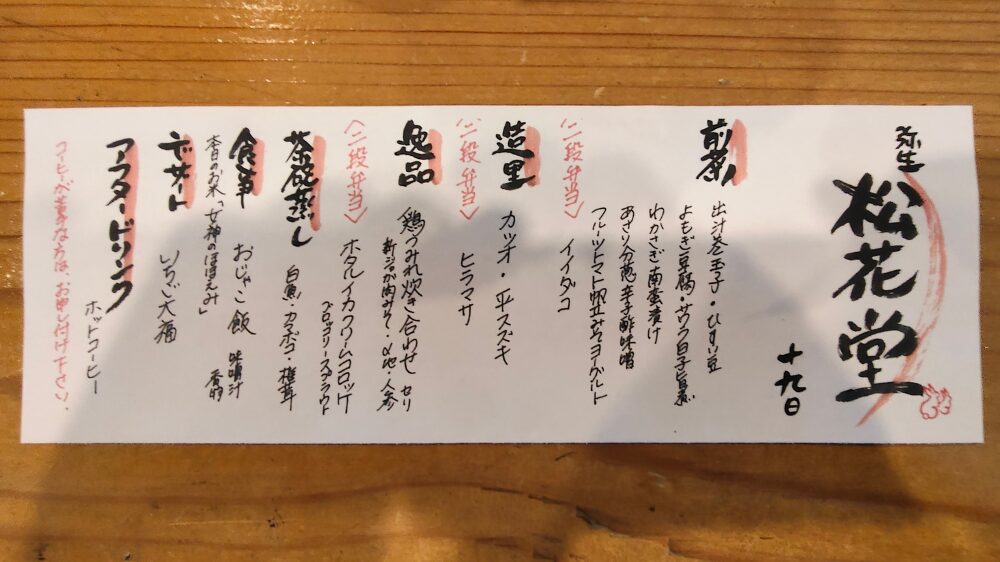 弥生
松花堂
十九日
前菜
出汁巻玉子・ひすい豆
よもぎ豆腐・サワラ白子旨煮
わかさぎ南蛮漬け
あさり分葱辛子酢味噌
フルーツトマト 西京みそヨーグルト
〈二段弁当〉
イイダコ
造里
カツオ・平スズキ
〈二段弁当〉
ヒラマサ
逸品
鶏つみれ炊き合わせ セリ
新じゃが肉みそ・人参
〈二段弁当〉
ホタルイカクリームコロッケ
ブロッコリースプラウト
茶碗蒸し
白魚・カマボコ・椎茸
食事
おじゃこ飯
味噌汁
香物
本日のお米「女神のほほえみ」
デザート
いちご大福
アフタードリンク
ホットコーヒー
コーヒーが苦手な方は、お申し付け下さい。